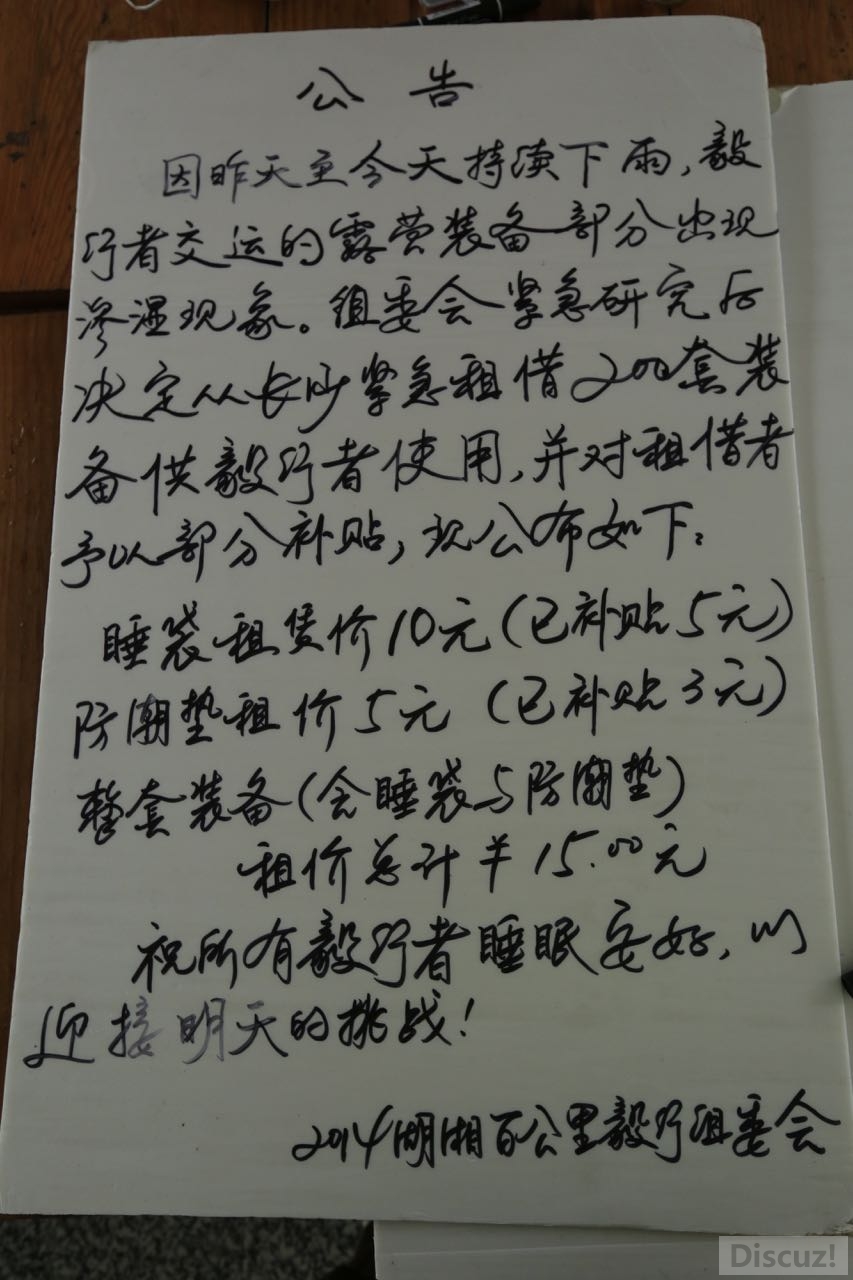 公告
因昨天至今天持续下雨,毅
行者交运的露营装备部分出现
渗湿现象。组委会紧急研究后
决定从长沙紧急租借200套装
备供毅行者使用,并对租借者
予以部分补贴,现公布如下:
睡袋租赁价10元(已补贴5元)
防潮垫租价5元(已补贴3元)
整套装备(含睡袋与防潮垫)
租价总计¥15.00元
祝所有毅行者睡眠安好,以
迎接明天的挑战!
2014湖湘百公里毅行组委会
Discuz!